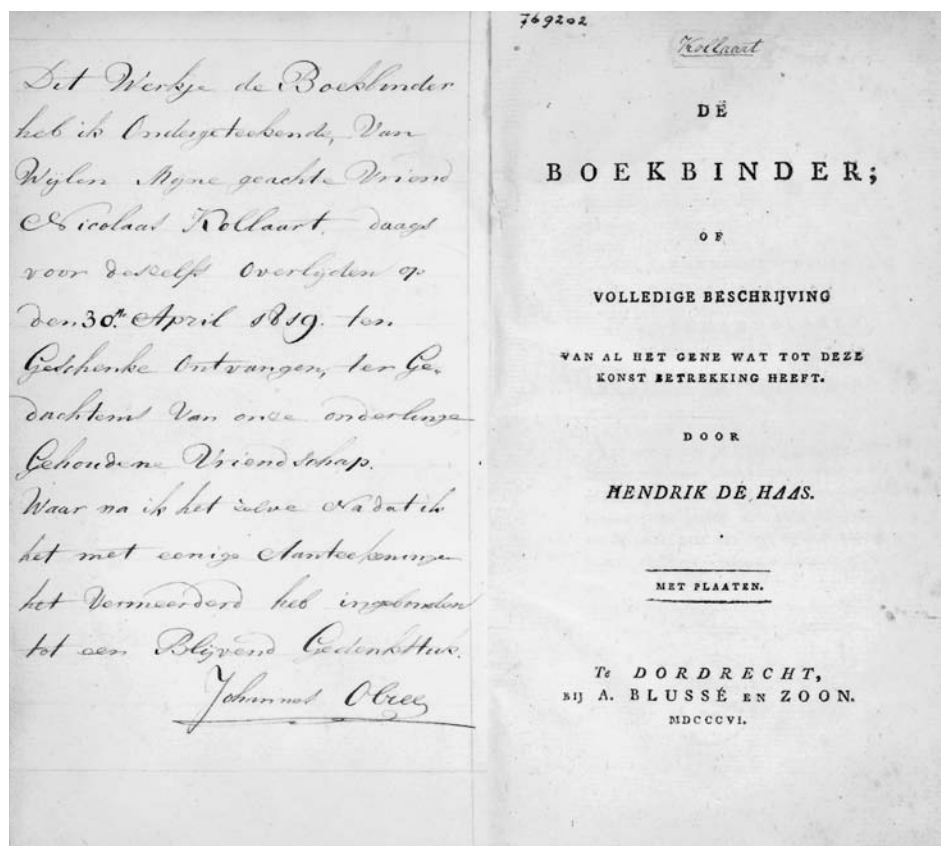 Dit Werkje de Boekbinder
heb ik Ondergeteekende, Van
Wijlen Mijne geachte Vriend
Nicolaas Kollaart, daags
voor deszelfs Overlijden op
den 30.n April 1819. ten
Geschenke Ontvangen, ter Ge,
dachtenis Van onze onderlinge
Gehoudene Vriendschap.
Waar na ik het zelve Nadat ik
het met eenige Aanteekeninge
het Vermeerderd heb ingebonden
tot een Blijvend Gedenkstuk.
Johannes Obree
769202
Kollaart
DE
BOEKBINDER;
OF
VOLLEDIGE BESCHRIJVING
VAN AL HET GENE WAT TOT DEZE
KONST BETREKKING HEEFT.
DOOR
HENDRIK DE HAAS.
MET PLAATEN.
Te DORDRECHT,
BIJ A. BLUSSÉ EN ZOON.
MDCCCVI.